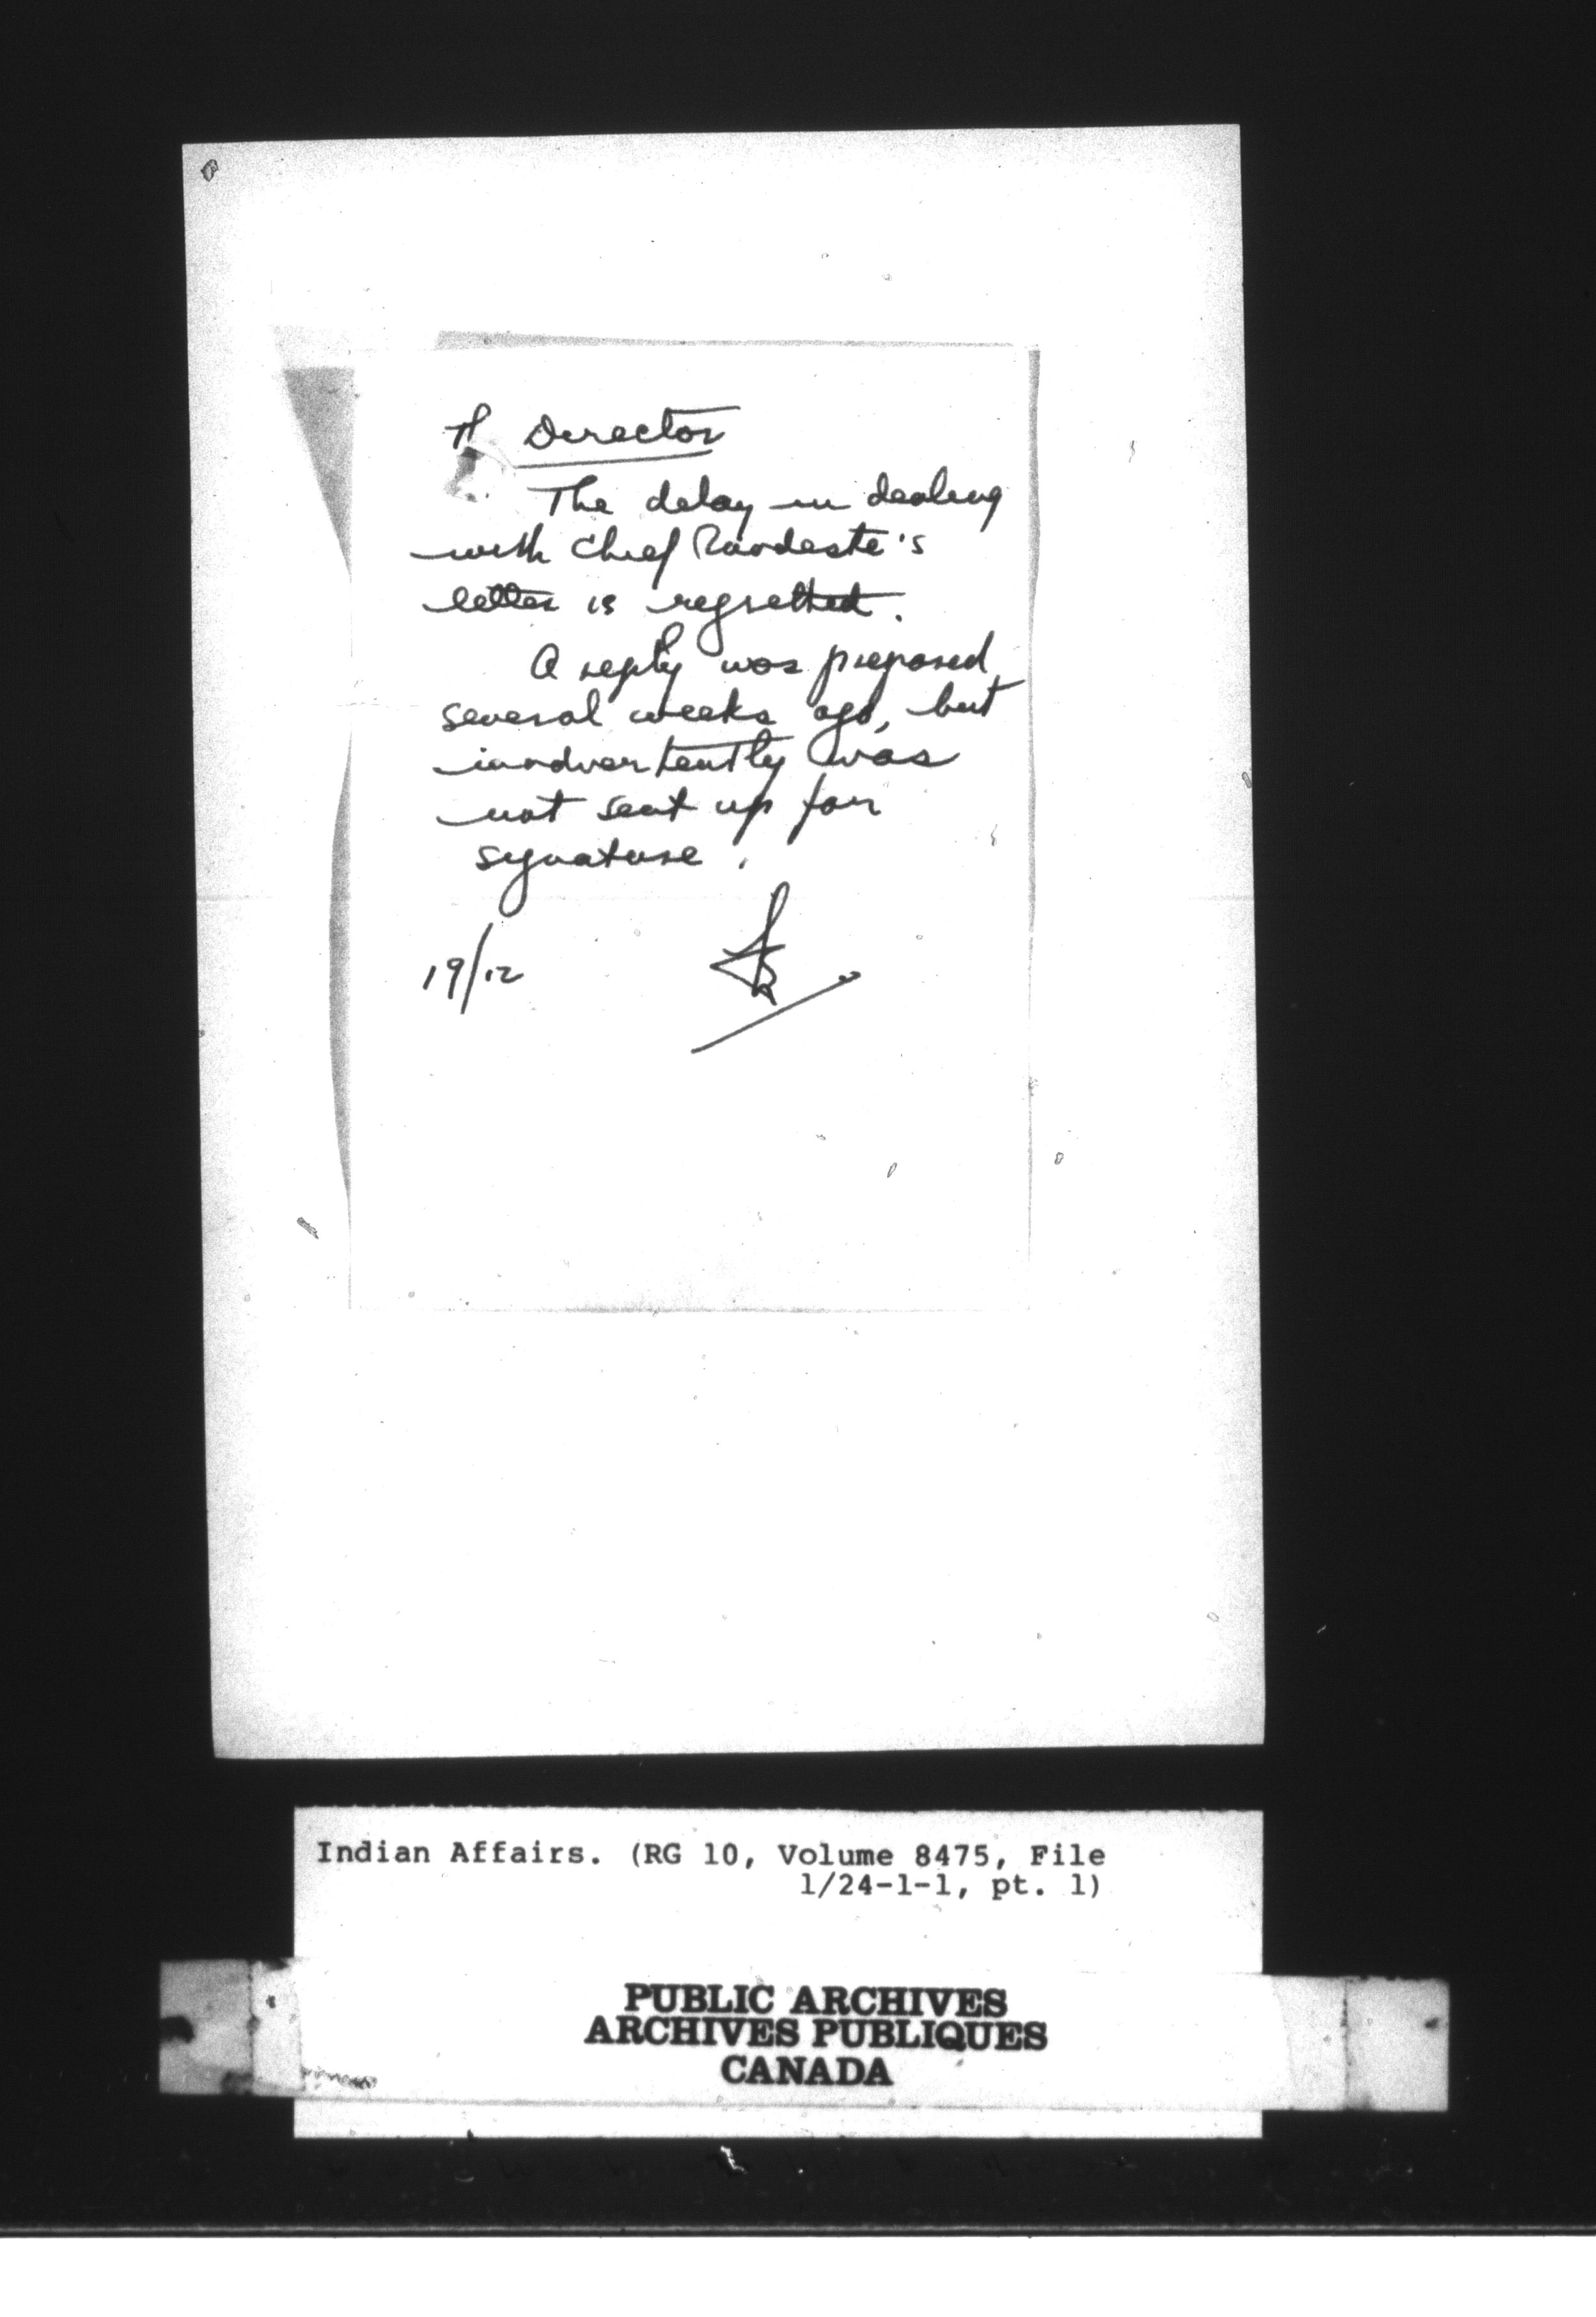 Director
The delay in dealing
with Chief
letter is regretted.
A reply was prepared
several weeks ago, but
inadvertently was
not sent up for
signature.
19/12
Indian Affairs. (RG 10, Volume 8475, File
1/24-1-1, pt. 1)
PUBLIC ARCHIVES
ARCHIVES PUBLIQUES
CANADA